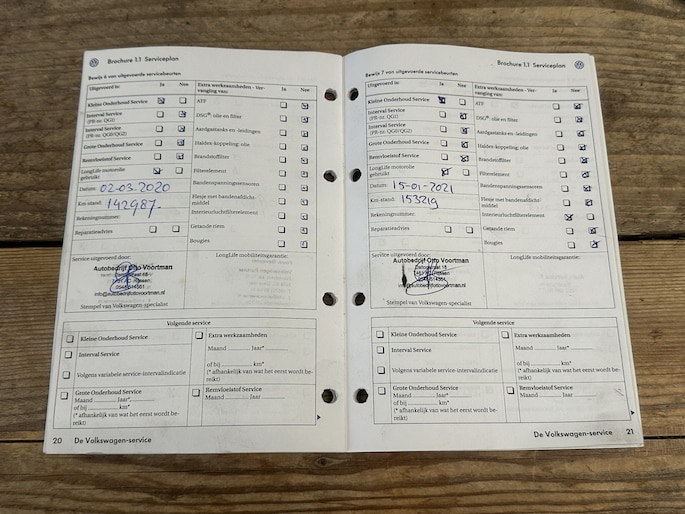 Brochure 1.1 Serviceplan
Bewijs 6 van uitgevoerde servicebeurten
Uitgevoerd is: Ja Nee
Kleine Onderhoud Service
Interval Service
(PR-nr. QGI)
Interval Service
Grote Onderhoud Service
Remvloeistof Service
LongLife motorolie
gebruikt
Datum: 02-03-2020
Km-stand: 142987.
Rekeningnummer:
Reparatieadvies
Extra werkzaamheden - Ver-
vanging van: Ja Nee
ATF
DSG®: olie en filter
Aardgastanks en -leidingen
Haldex-koppeling: olie
Brandstoffilter
Filterelement
Bandenspanningssensoren
Flesje met bandenafdicht-
middel
Interieurluchtfilterelement
Getande riem
Bougies
Service uitgevoerd door:
Autobedrijf Otto Voortman
info@autobedrijfottovoortman.nl
Stempel van Volkswagen-specialist
LongLife mobiliteitsgarantie:
Volgende service
Kleine Onderhoud Service
Interval Service
Volgens variabele service-intervalindicatie
Grote Onderhoud Service
Maand Jaar*
of bij km*
(* afhankelijk van wat het eerst wordt be-
reikt)
Extra werkzaamheden
Maand Jaar*
of bij km*
(* afhankelijk van wat het eerst wordt be-
reikt)
Remvloeistof Service
Maand Jaar
20 De Volkswagen-service
Brochure 1.1 Serviceplan
Bewijs 7 van uitgevoerde servicebeurten
Uitgevoerd is: Ja Nee
Kleine Onderhoud Service
Interval Service
(PR-nr. QGI)
Interval Service
Grote Onderhoud Service
Remvloeistof Service
LongLife motorolie
gebruikt
Datum: 15-01-2021
Km-stand: 153219
Rekeningnummer:
Reparatieadvies
Extra werkzaamheden - Ver-
vanging van: Ja Nee
ATF
DSG®: olie en filter
Aardgastanks en -leidingen
Haldex-koppeling: olie
Brandstoffilter
Filterelement
Bandenspanningssensoren
Flesje met bandenafdicht-
middel
Interieurluchtfilterelement
Getande riem
Bougies
Service uitgevoerd door:
Autobedrijf Otto Voortman
info@autobedrijfottovoortman.nl
Stempel van Volkswagen-specialist
LongLife mobiliteitsgarantie:
Volgende service
Kleine Onderhoud Service
Interval Service
Volgens variabele service-intervalindicatie
Grote Onderhoud Service
Maand Jaar*
of bij km*
(* afhankelijk van wat het eerst wordt be-
reikt)
Extra werkzaamheden
Maand Jaar*
of bij km*
(* afhankelijk van wat het eerst wordt be-
reikt)
Remvloeistof Service
Maand Jaar
De Volkswagen-service 21